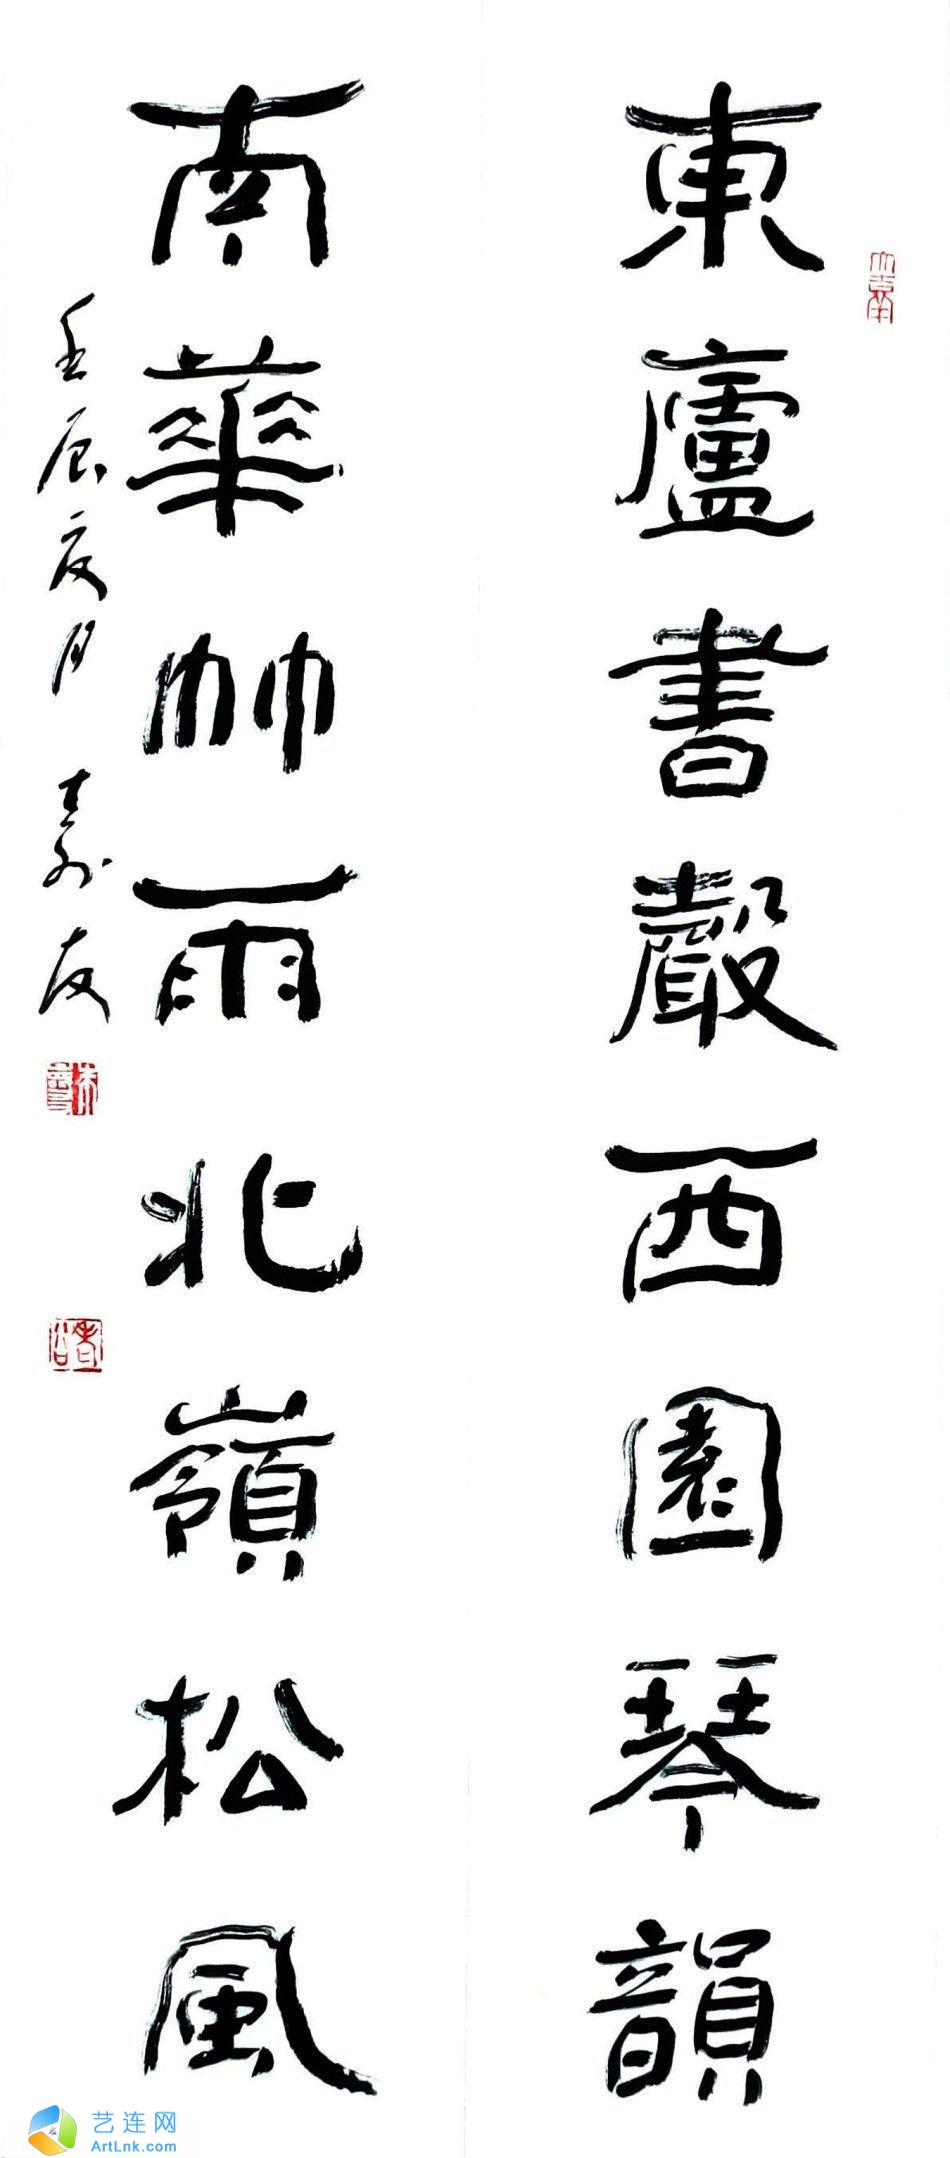 大吉羊
東廬書聲西園琴韻
南華竹雨北嶺松風
壬辰夏月 壽友
艺连网
ArtLnk.com